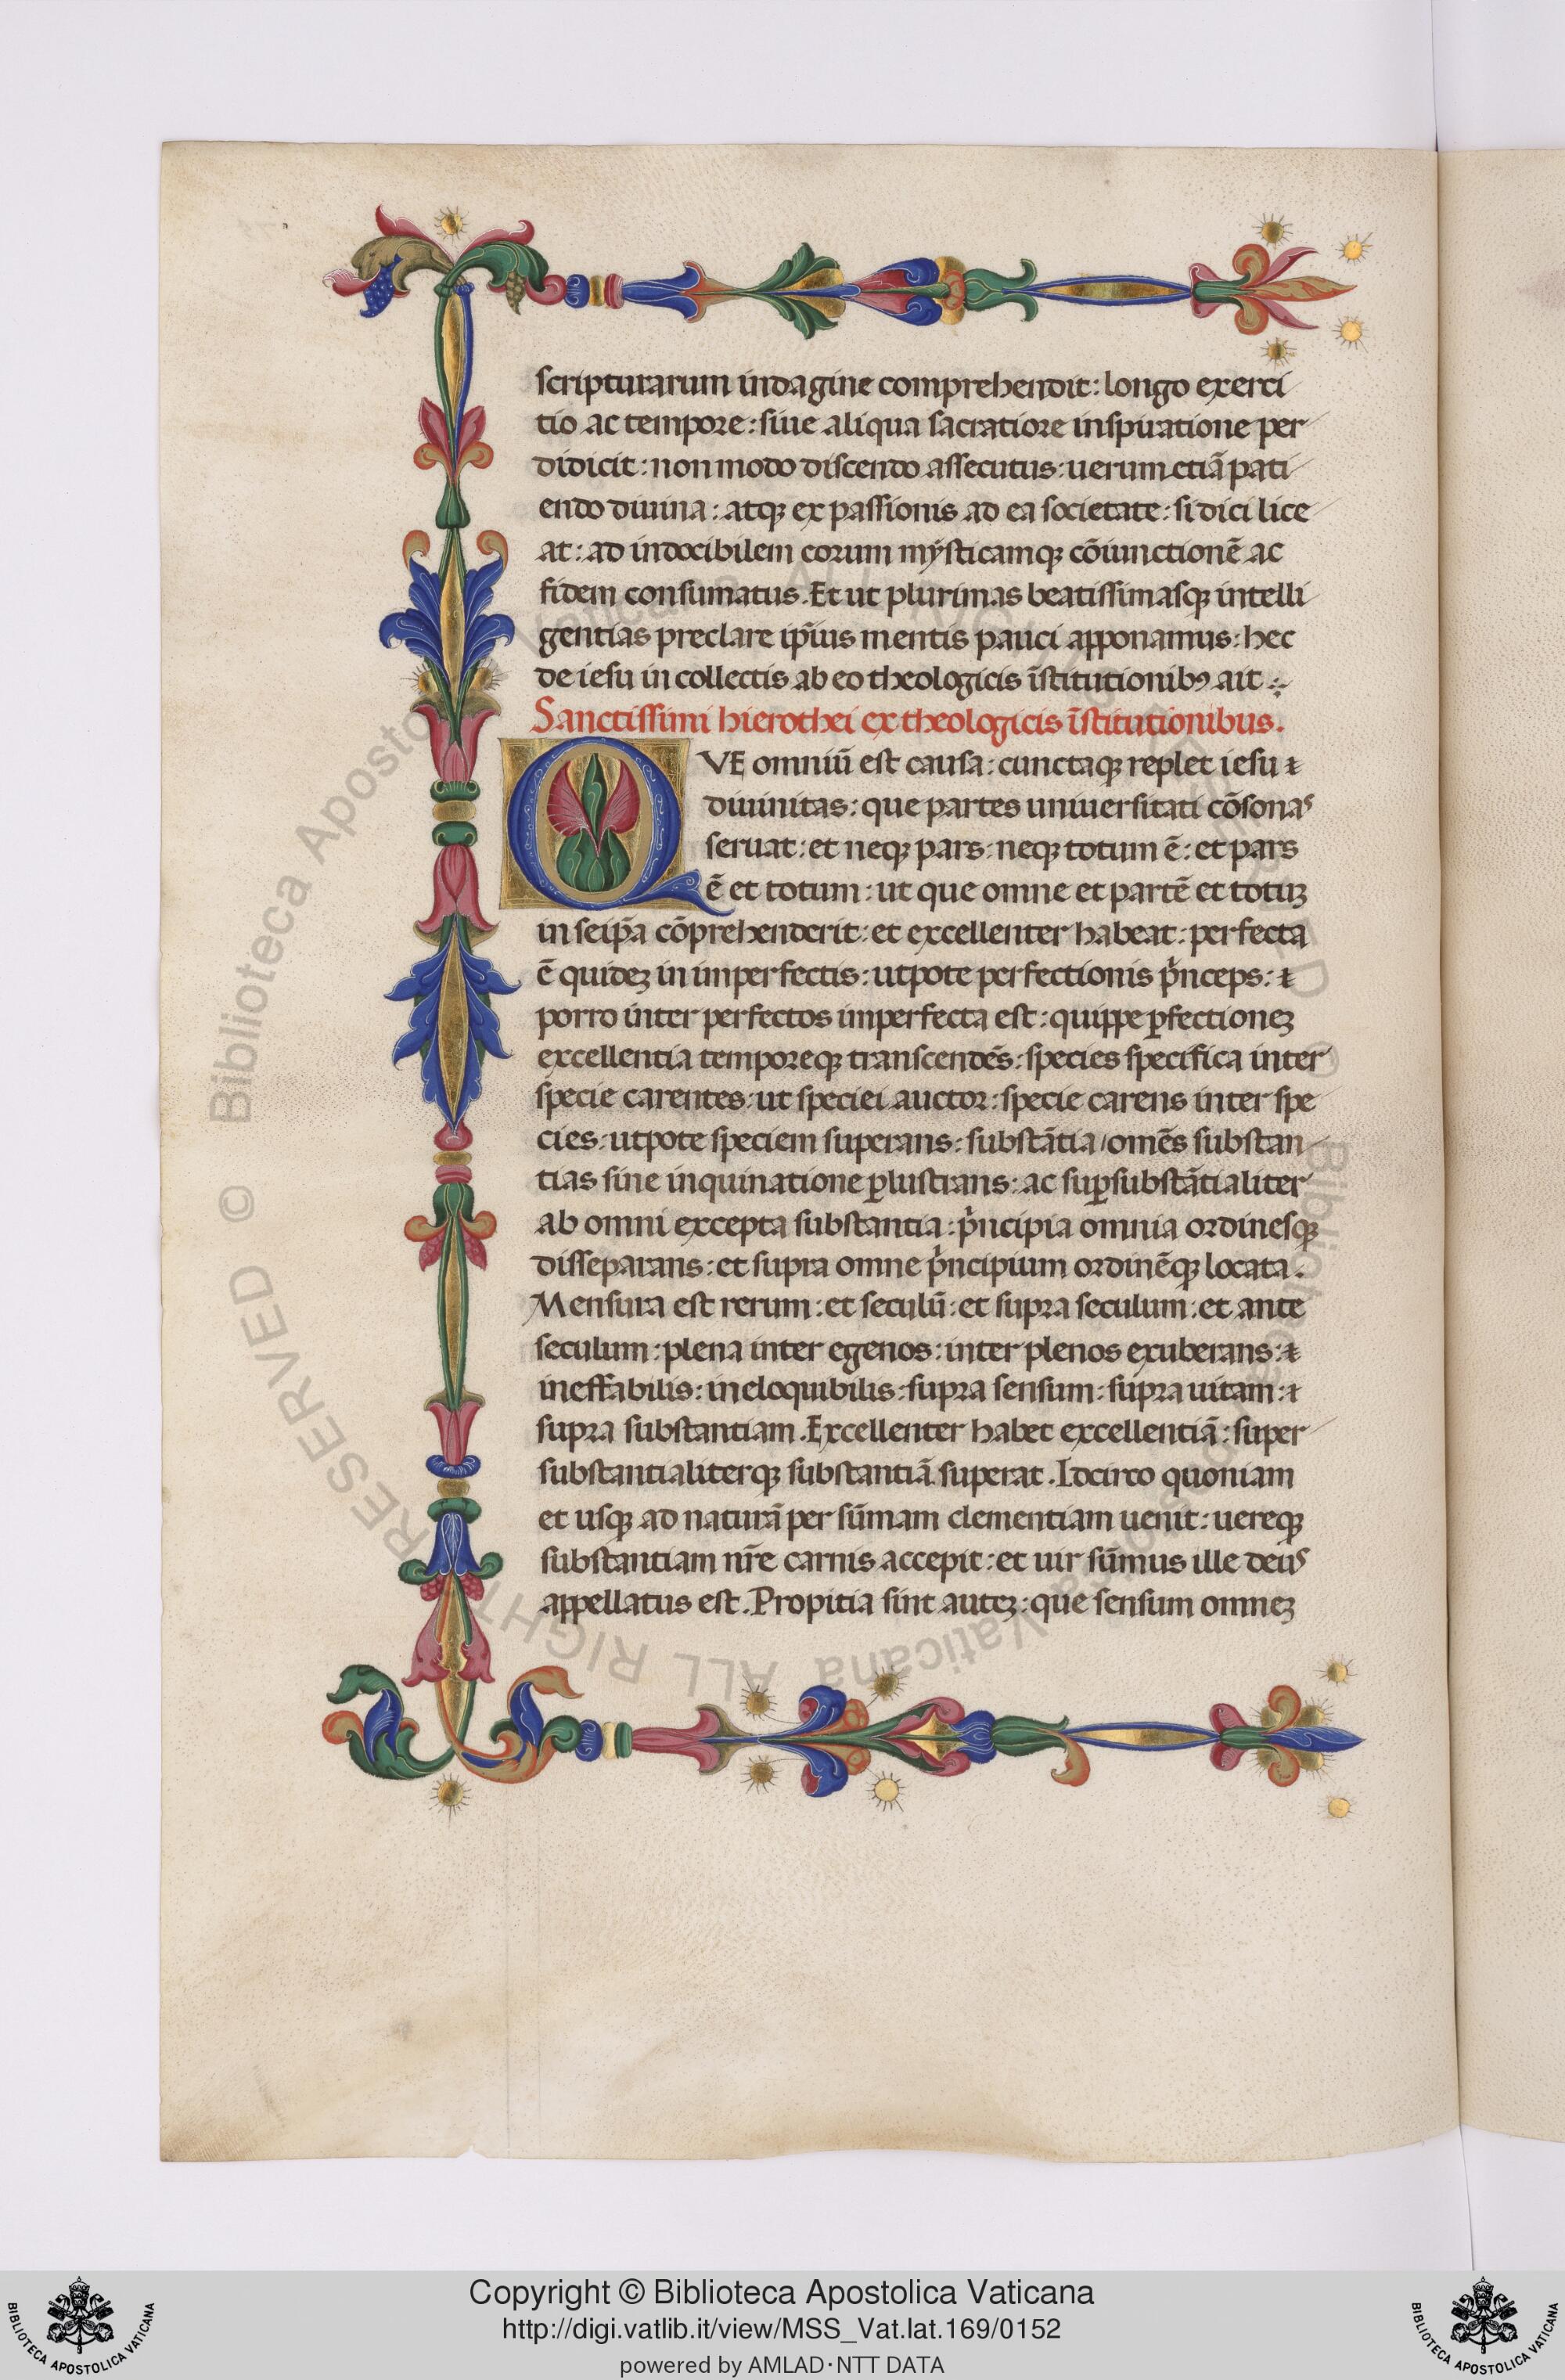 scripturarum indagine comprehendit: longo exerci
tio ac tempore: siue aliqua sacratiore inspiratione per
didicit: non modo discendo assecutus: uerum etiā pati
endo diuina: atqꝫ ex passionis ad ea societate: si dici lice
at: ad indocibilem eorum mẏsticamqꝫ cōiunctionē ac
fidem consumatus. Et ut plurimas beatissimasqꝫ intelli
gentias preclare ip̄ius mentis pauci apponamus: hec
de iesu in collectis ab eo theologicis īstitutionibꝰ ait :~
Sanctissimi hierothei ex theologicis īstitutionibus.
QVE omniū est causa: cunctaqꝫ replet iesu ⁊
diuinitas: que partes uniuersitati cōsonas
seruat: et neqꝫ pars: neqꝫ totum ē: et pars
ē et totum: ut que omne et partē et totuꝫ
in seip̄a cōprehenderit: et excellenter habeat: perfecta
ē quideꝫ in imperfectis: utpote perfectionis pͥnceps: ⁊
porro inter perfectos imperfecta est: quippe ꝑfectioneꝫ
excellentia temporeqꝫ transcendēs: species specifica inter
specie carentes: ut speciei auctor: specie carens inter spe
cies: utpote speciem superans: substātia / omēs substan
tias sine inquinatione ꝑlustrans: ac suꝑsubstātialiter
ab omni excepta substantia: pͥncipia omnia ordinesqꝫ
disseparans: et supra omne pͥncipium ordinēqꝫ locata.
Mensura est rerum: et seculū: et supra seculum: et ante
seculum: plena inter egenos: inter plenos exuberans: ⁊
ineffabilis: ineloquibilis: supra sensum: supra uitam: ⁊
supra substantiam. Excellenter habet excellentiā: super
substantialiterqꝫ substantiā superat. Idcirco quoniam
et usqꝫ ad naturā per sūmam clementiam uenit: uereqꝫ
substantiam nr̄e carnis accepit: et uir sūmus ille deus
appellatus est. Propitia sint auteꝫ: que sensum omneꝫ
© Biblioteca Apostolica Vaticana ALL RIGHTS RESERVED
Copyright © Biblioteca Apostolica Vaticana
http://digi.vatlib.it/view/MSS_Vat.lat.169/0152
powered by AMLAD·NTT DATA
BIBLIOTECA APOSTOLICA VATICANA
BIBLIOTECA APOSTOLICA VATICANA